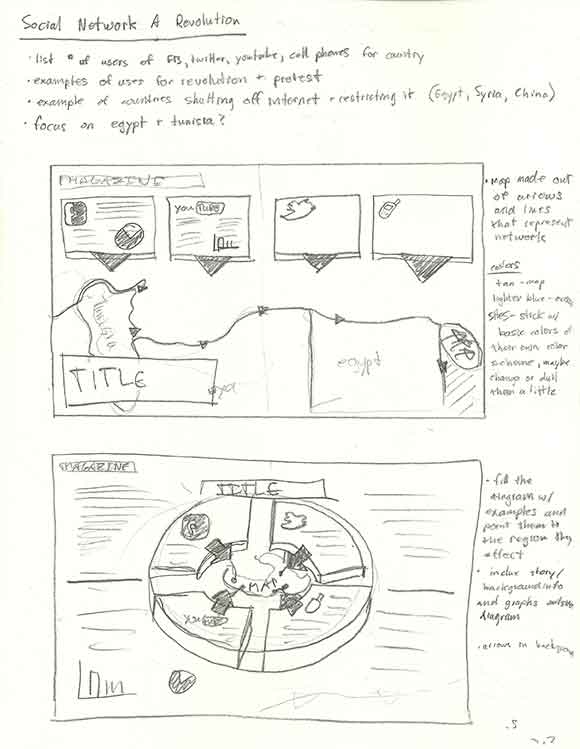 Social Network A Revolution
• list # of users of FB, twitter, youtube, cell phones for country
• examples of uses for revolution + protest
• example of countries shutting off internet + restricting it (Egypt, Syria, China)
• focus on egypt + tunisia?
MAGAZINE
YOU TUBE
Tunisia
TITLE
egypt
• Map made out
of arrows
and lines
that represent
network
colors
tan - map
lighter blue -
sites - stick w/
basic colors of
their own color
scheme, maybe
change or dull
them a little
MAGAZINE
TITLE
MAP
YOU TUBE
• fill the
diagram w/
examples and
point them to
the region they
effect
• inclue story/
background info
and graphs outside
diagram
• arrows in background
.5